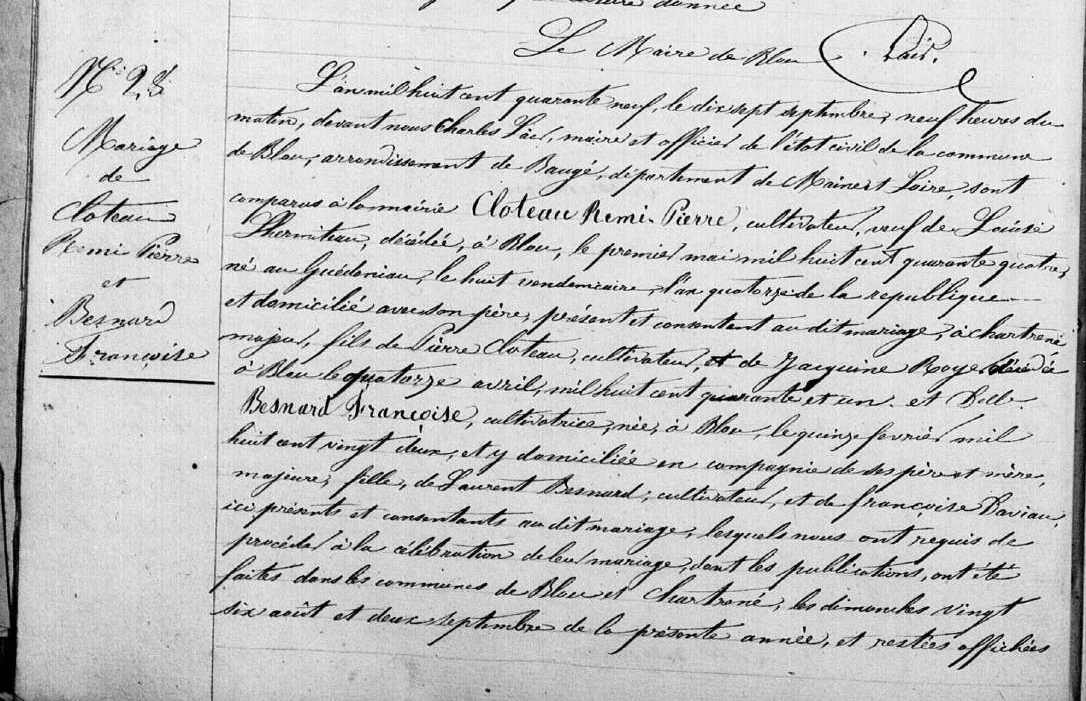 année
Le Maire de Blou
N° 28
Mariage
de
Cloteau
Remi Pierre
et
Besnard
Françoise
L'an mil huit cent quarante neuf, le dix sept septembre, neuf heures du
matin, devant nous Charles, maire et officier de l'état civil de la commune
de Blou, arrondissement de Baugé, département de Maine et Loire, sont
comparus à la mairie Cloteau Remi-Pierre, cultivateur, veuf de Louise
Lhermiteau, décédée, à Blou, le premier mai mil huit cent quarante quatre,
né au Guédeniau, le huit vendemiaire, l'an quatorze de la republique
et domicilié avec son père, présent et consentant au dit mariage, à chartrené
majeur, fils de Pierre Cloteau, cultivateur, et de Jacquine Roye décédée
à Blou le quatorze avril, mil huit cent quarante et un. et Delle.
Besnard Françoise, cultivatrice, née, à Blou, le quinze fevrier mil
huit cent vingt deux, et y domiciliée en compagnie de ses père et mère,
majeure, fille, de Laurent Besnard, cultivateur, et de françoise Daviau,
ici présents et consentants au dit mariage, lesquels nous ont requis de
procéder à la célébration de leur mariage, dont les publications, ont été
faites dans les communes de Blou et Chartrené, les dimanches vingt
six août et deux septembre de la présente année, et restées affichées